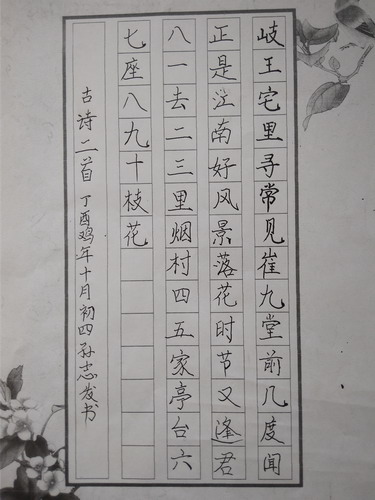 岐王宅里寻常见崔九堂前几度闻
正是江南好风景落花时节又逢君
八一去二三里烟村四五家亭台六
七座八九十枝花
古诗二首 丁酉鸡年十月初四孙志发书